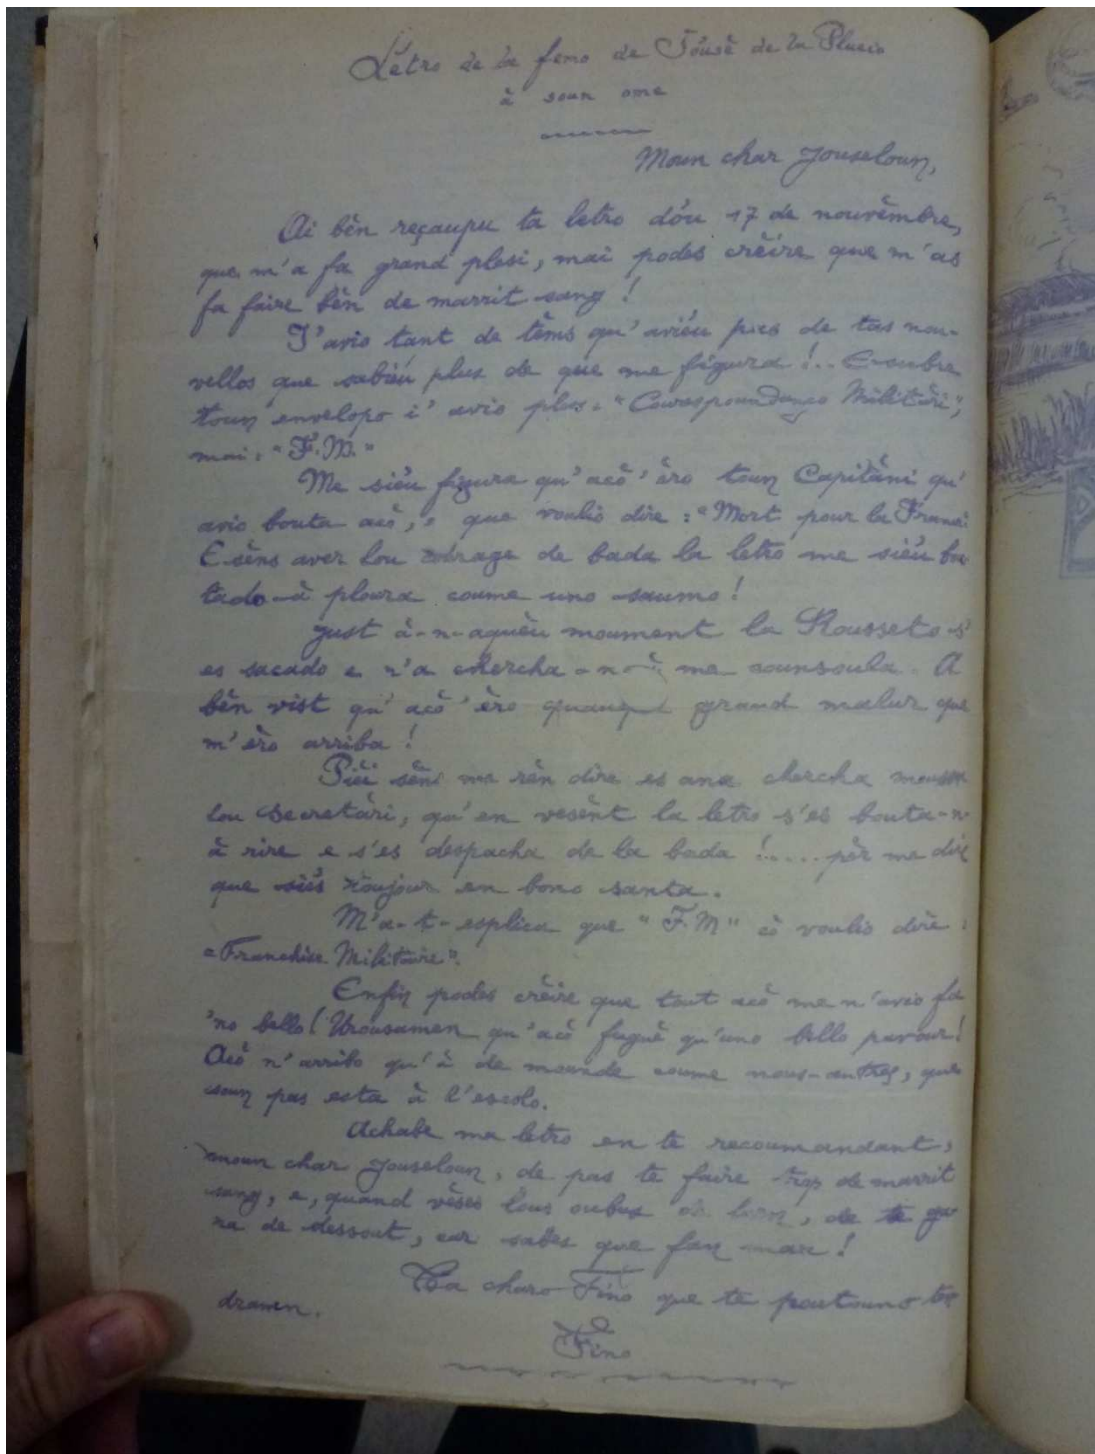 Letro de la feno de Jóusè de la Plueio
à soun ome
Moun char Jouseloun,
Ai bèn reçaupu ta letro dóu 17 de nouvèmbre,
que m'a fa grand plesi, mai podes crèire que m'as
fa faire bèn de marrit sang !
I'avio tant de tèms qu'avièu pas de tas nou-
vellos que sabiéu plus de que me figura !.. E subre
toun envelopo i'avio plus : "Courespoundenço Militàri",
mai : "F.M."
Me siéu figura qu'acò'èro toun Capitàni qu'
avio bouta acò, e que voulio dire : "Mort pour la France."
E sèns aver lou courage de bada la letro me siéu bou-
tado à ploura coume uno saumo !
Just à-n-aquèu moument la Rousseto s'
es sacado e n'a chercha-n-à me counsoula. A
bèn vist qu'acò'èro quauque grand malur que
m'èro arriba !
Pièi sèns me rèn dire es ana chercha moussu
lou Secretàri, qu'en vesènt la letro s'es bouta-n-
à rire e s'es despacha de la bada !.... pèr me dire
que siés toujour en bono santa.
M'a-t-esplica que "F.M" cò voulio dire :
"Franchise Militaire".
Enfin podes crèire que tout acò me n'avio fa
'no bello ! Urousamen qu'acò fuguè qu'uno bello pavour !
Acò n'arribo qu'à de mounde coume nous-autres, que
soun pas esta à l'escolo.
Achabe ma letro en te recoumandant,
moun char Jouseloun, de pas te faire trop de marrit
sang, e, quand vèses lous oubus de luen, de te ga-
ra de dessout, car sabes que fan mau !
Ta charo Fino que te poutouno tè-
dramen.
Fino